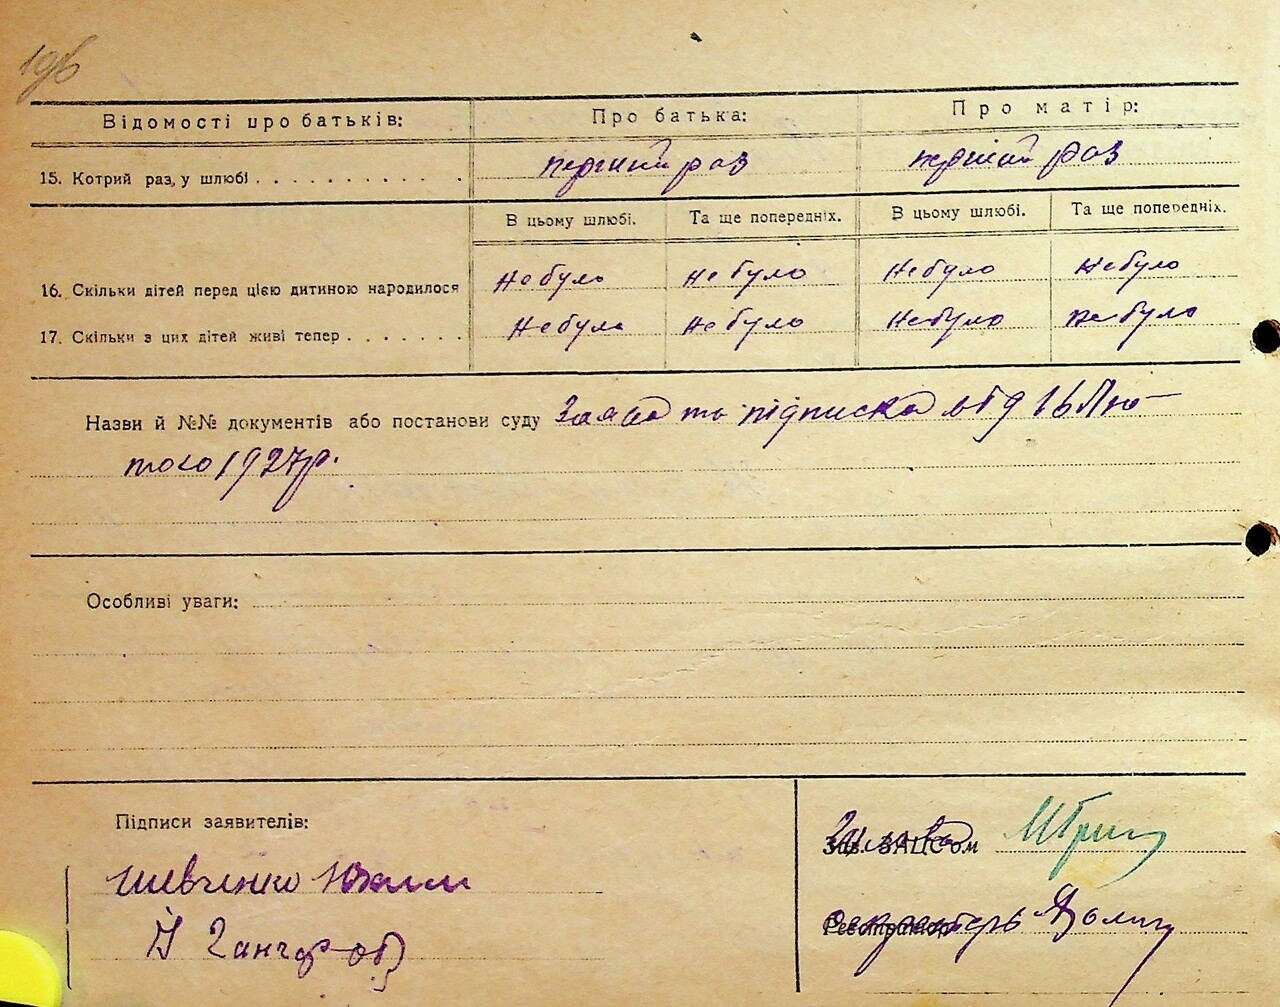 196
Відомості про батьків: Про батька: Про матір:
15. Котрий раз, у шлюбі . . . . . . . . . . . перший раз перший раз
В цьому шлюбі. Та ще попередніх. В цьому шлюбі. Та ще попередніх.
16. Скільки дітей перед цією дитиною народилося не було не було не було не було
17. Скільки з цих дітей живі тепер . . . . . . . не було не було не було не було
Назви й №№ документів або постанови суду Заява та підписка від 16 Лю-
того 1927р.
Особливі уваги:
Підписи заявителів:
Голова Зав. ЗАЦС'ом
Шевченко
секретарь Реєстратор